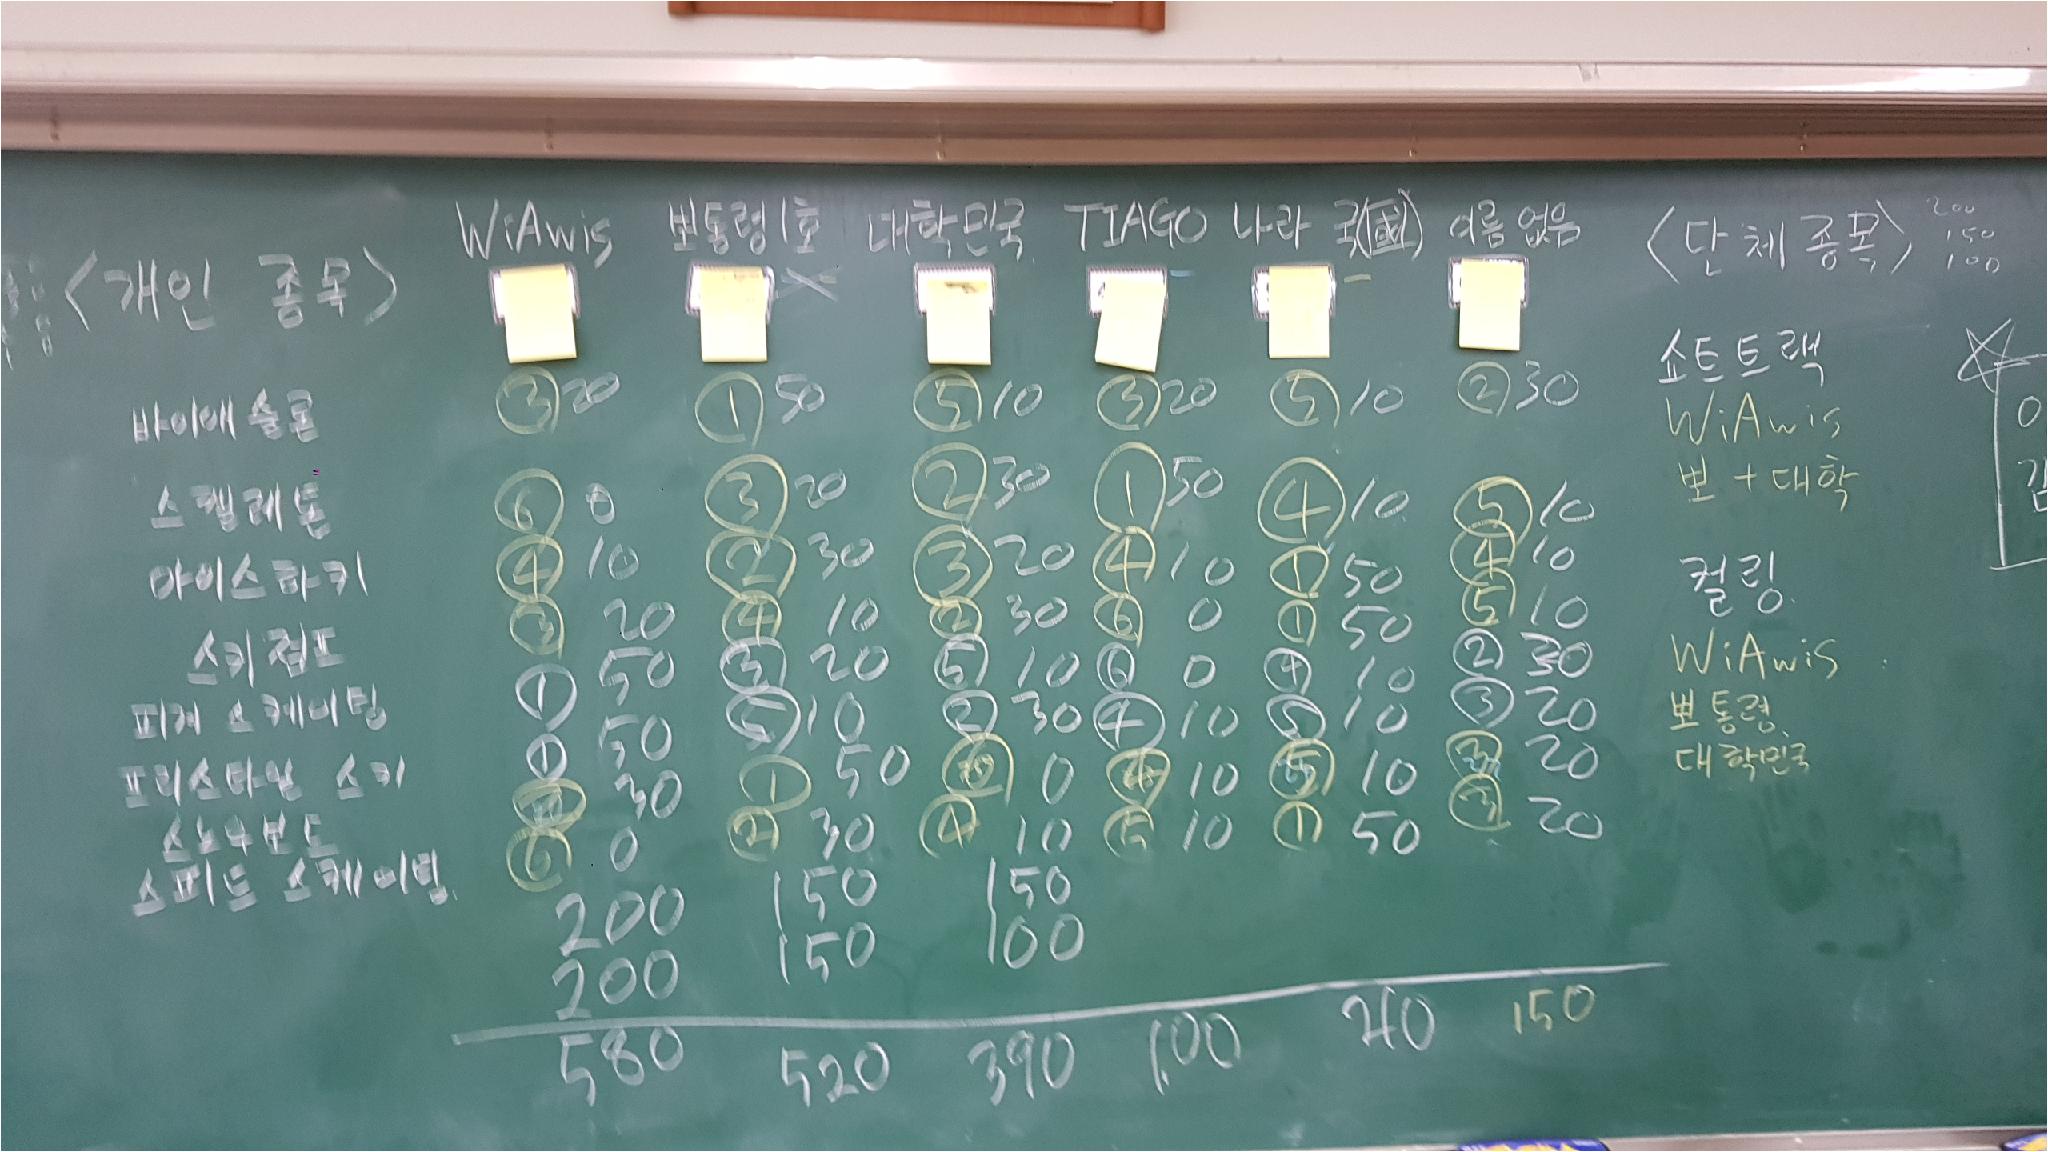 WiAwis 뽀통령1호 대학민국 TIAGO 나라 국(國) 이름 없음
<개인 종목>
바이애슬론 ③ 20 ① 50 ⑤ 10 ③ 20 ⑤ 10 ② 30
스켈레톤 ⑥ 0 ③ 20 ② 30 ① 50 ④ 10 ⑤ 10
아이스하키 ④ 10 ② 30 ③ 20 ④ 10 ① 50 ④ 10
스키점프 ③ 20 ④ 10 ② 30 ⑥ 0 ① 50 ⑤ 10
피겨 스케이팅 ① 50 ③ 20 ⑤ 10 ⑥ 0 ④ 10 ② 30
프리스타일 스키 ① 50 ⑤ 10 ② 30 ④ 10 ⑤ 10 ③ 20
스노우보드 30 ① 50 0 10 ⑤ 10 ③ 20
스피드 스케이팅 ⑥ 0 ② 30 ④ 10 ⑤ 10 ① 50 ③ 20
200 150 150
200 150 100
580 520 390 100 150
<단체 종목>
200
150
100
쇼트트랙
WiAwis
뽀 + 대학
컬링
WiAwis
뽀통령
대학민국